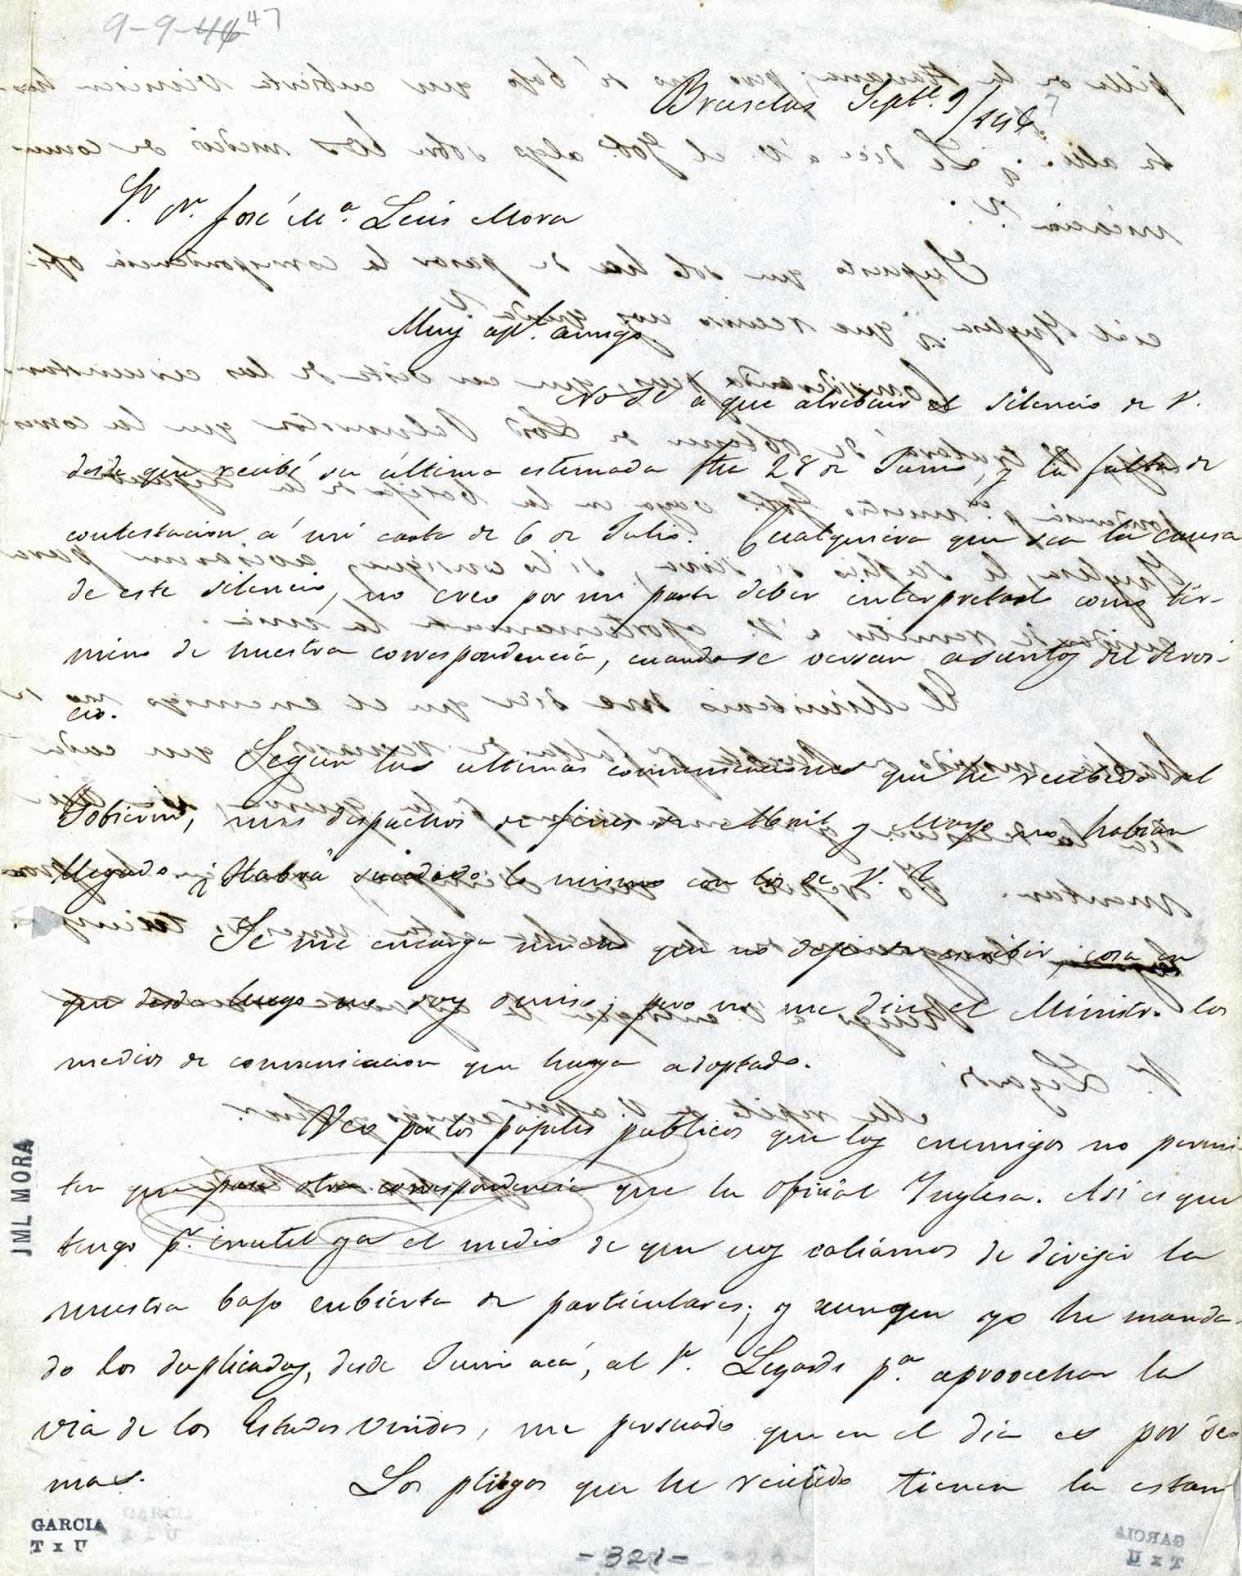 9-9-46 47
Bruselas Septe. 9/846. 7
Sr. Dr. José Ma. Luis Mora
Muy apdo. amigo.
No sé á que atribuir el silencio de V.
desde que recibí su última estimada fha 28 de Junio, y la falta de
contestacion á mi carta de 6 de Julio. Cualquiera que sea la causa
de este silencio, no creo por mi parte deber interpretarlo como tér-
mino de nuestra correspondencia, cuando se versan asuntos del servi-
cio.
Segun las ultimas comunicaciones que he recibido del
Gobierno, mis despachos de fines de Abril y Mayo no habian
llegado ¿Habrá sucedido lo mismo con los de V.?
Se me encarga mucho que no deje de escribir, cosa en
que desde luego no soy omiso; pero no me dice el Ministro los
medios de comunicacion que haya adoptado.
Veo por los papeles publicos que los enemigos no permi-
ten que pase otra correspondencia que la oficial Ynglesa. Asi es que
tengo pr. inutil ya el medio de que nos valiamos de dirijir la
nuestra bajo cubierta de particulares; y aunque yo he manda-
do los duplicados, desde Junio acá, al Sr. Legarde pa. aprovechar la
via de los Estados Unidos, me persuado que en el dia es por de-
mas. Los pliegos que he recibido tienen la estam
JML MORA
GARCIA
T x U
-321-